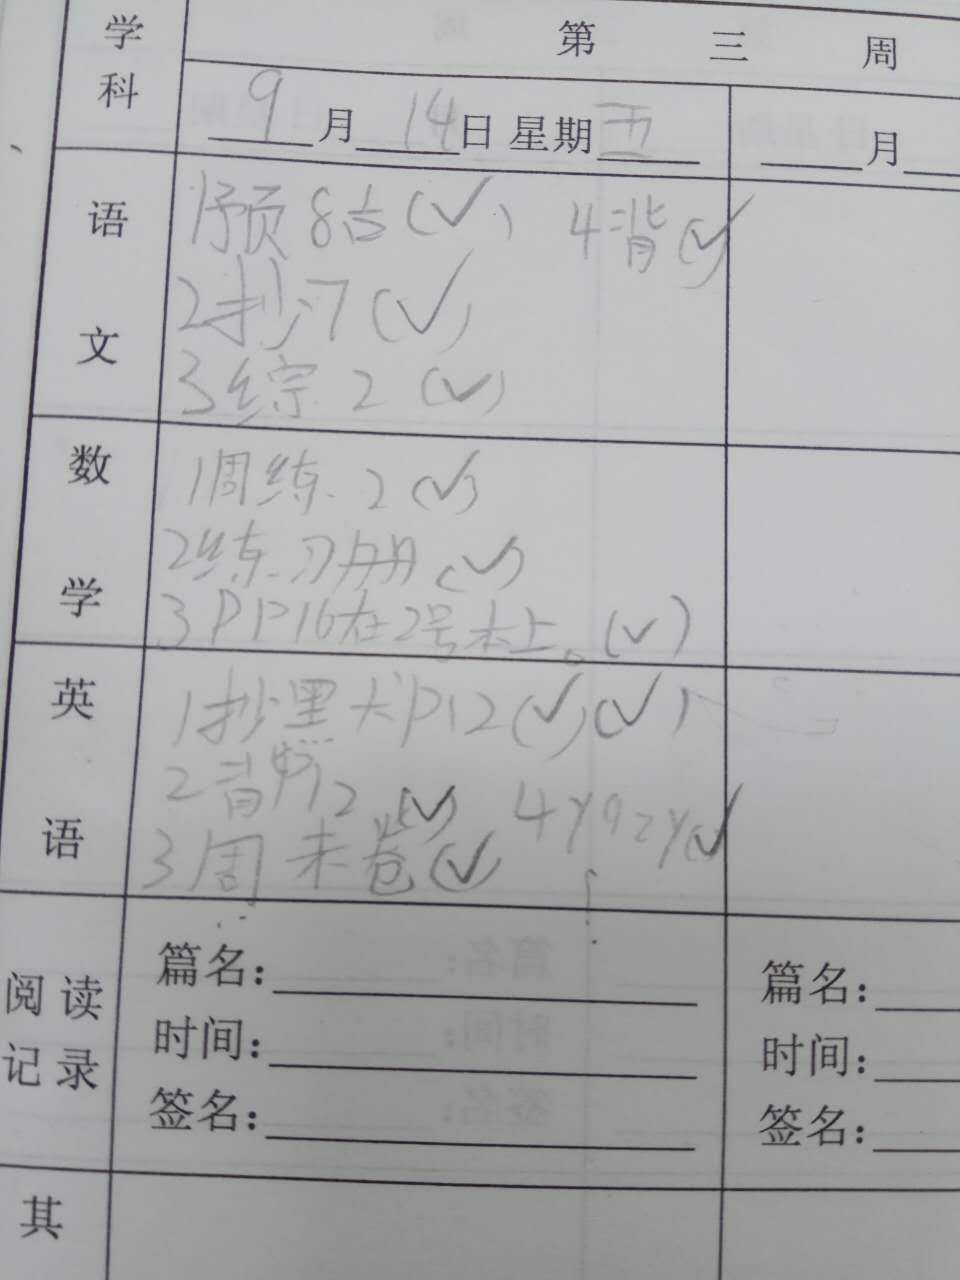 学科 第 三 周
9月14日 星期五 月
语文
1预8古(✓) 4背(✓)
2抄7(✓)
3综2(✓)
数学
1周练.2(✓)
2练习册(✓)
3PP16在2号本上。(✓)
英语
1抄黑 P12(✓)(✓)
2背 P12(✓) 4y9zy(✓)
3周末卷(✓)
阅读记录
篇名: 篇名:
时间: 时间:
签名: 签名:
其